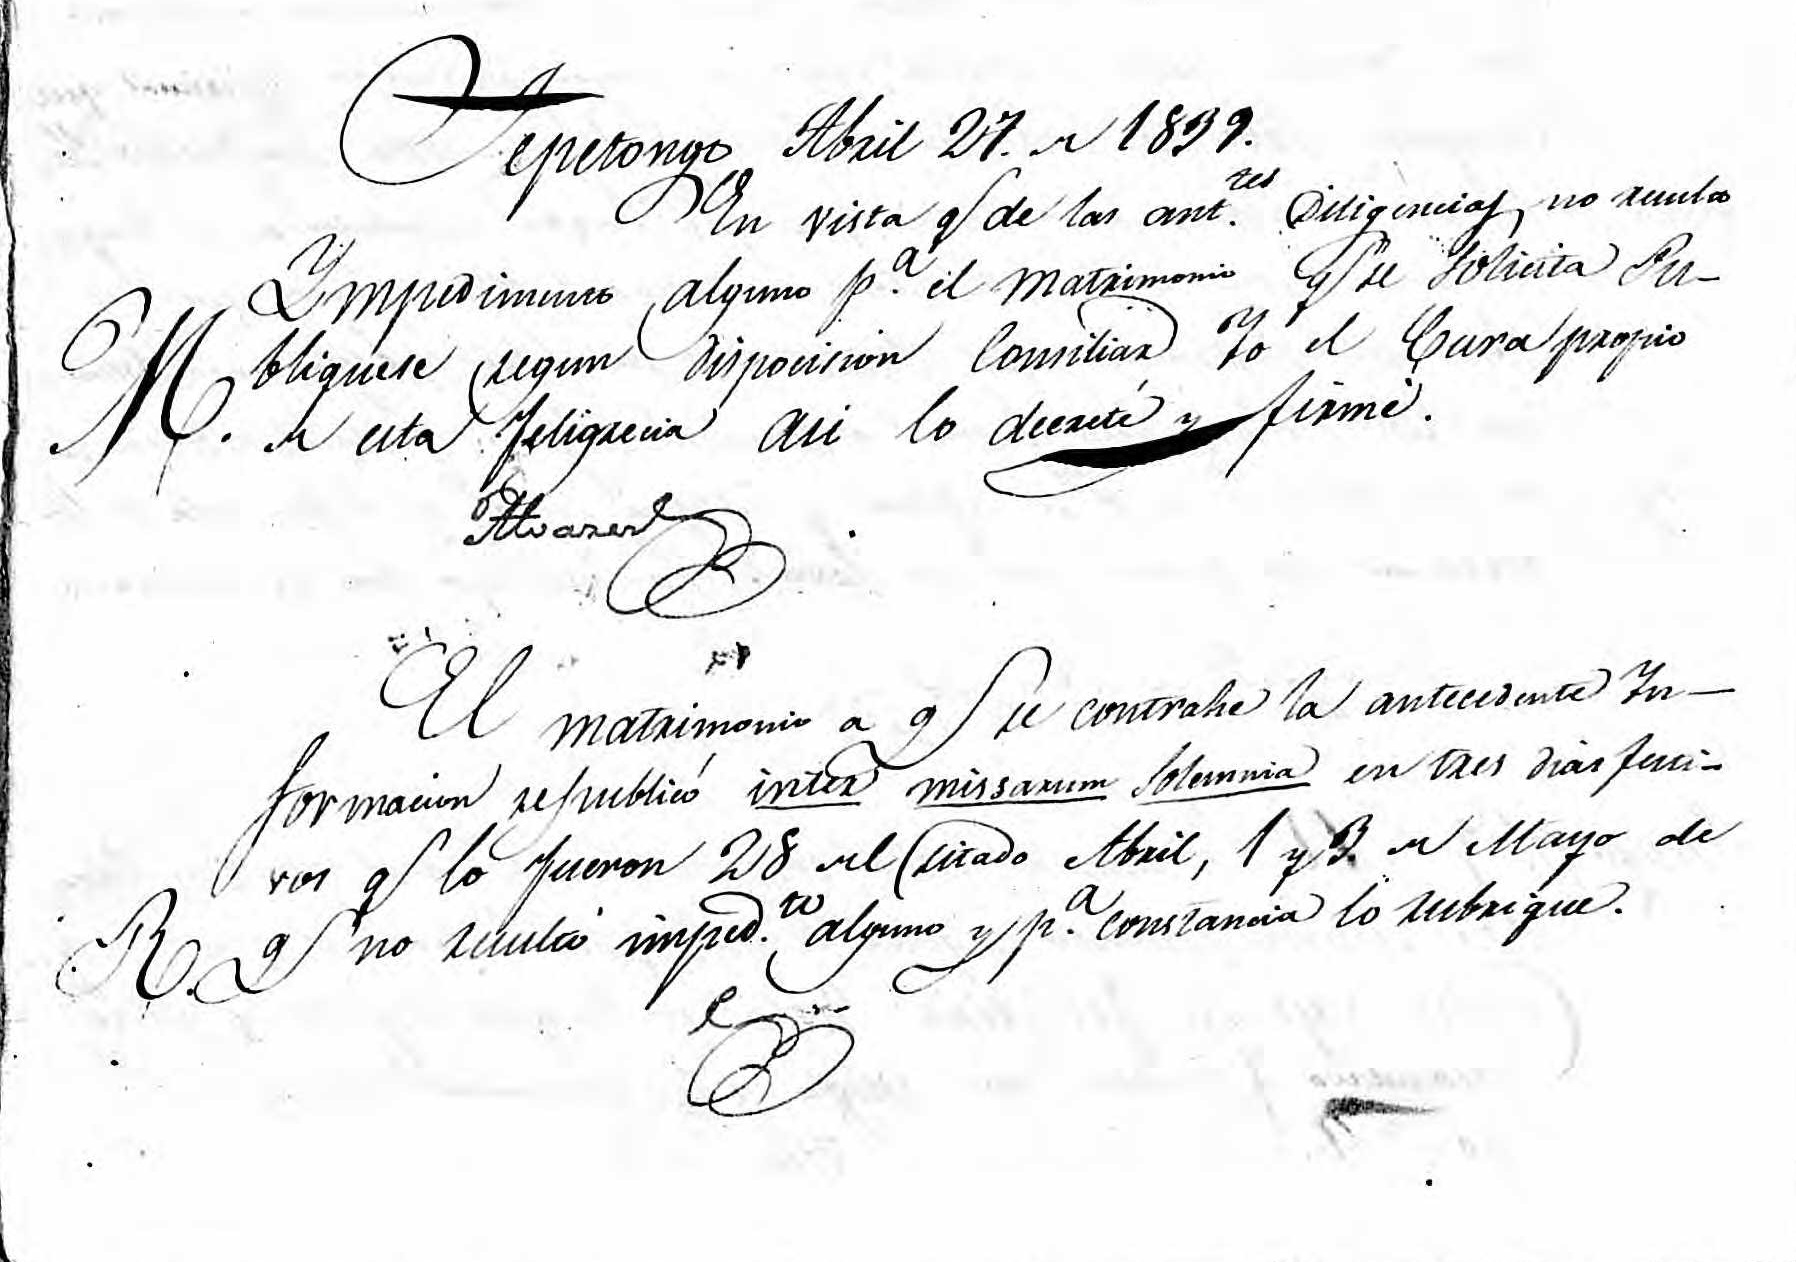 Tepetongo Abril 27. de 1839.
En vista q.e de las ant.tes Diligencias, no resulta
Ympedimento alguno p.a el Matrimonio q.e se solicita Pu-
bliquese segun disposision Consiliar Yo el Cura propio
M. de esta feligrecia asi lo decreté y firmé.
Alvarez
El matrimonio a q.e se contrahe la antecedente In-
formacion se publicó inter missarum Solemnia en tres dias festi-
vos q.e lo fueron 28 del citado Abril, 1 y 3 de Mayo de
R. q.e no resultó imped.to alguno y p.a constancia lo rubrique.